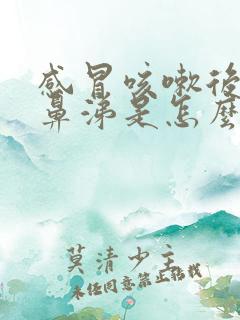 感冒咳嗽後
鼻涕是怎麼
莫清少主
未经同意禁止转载